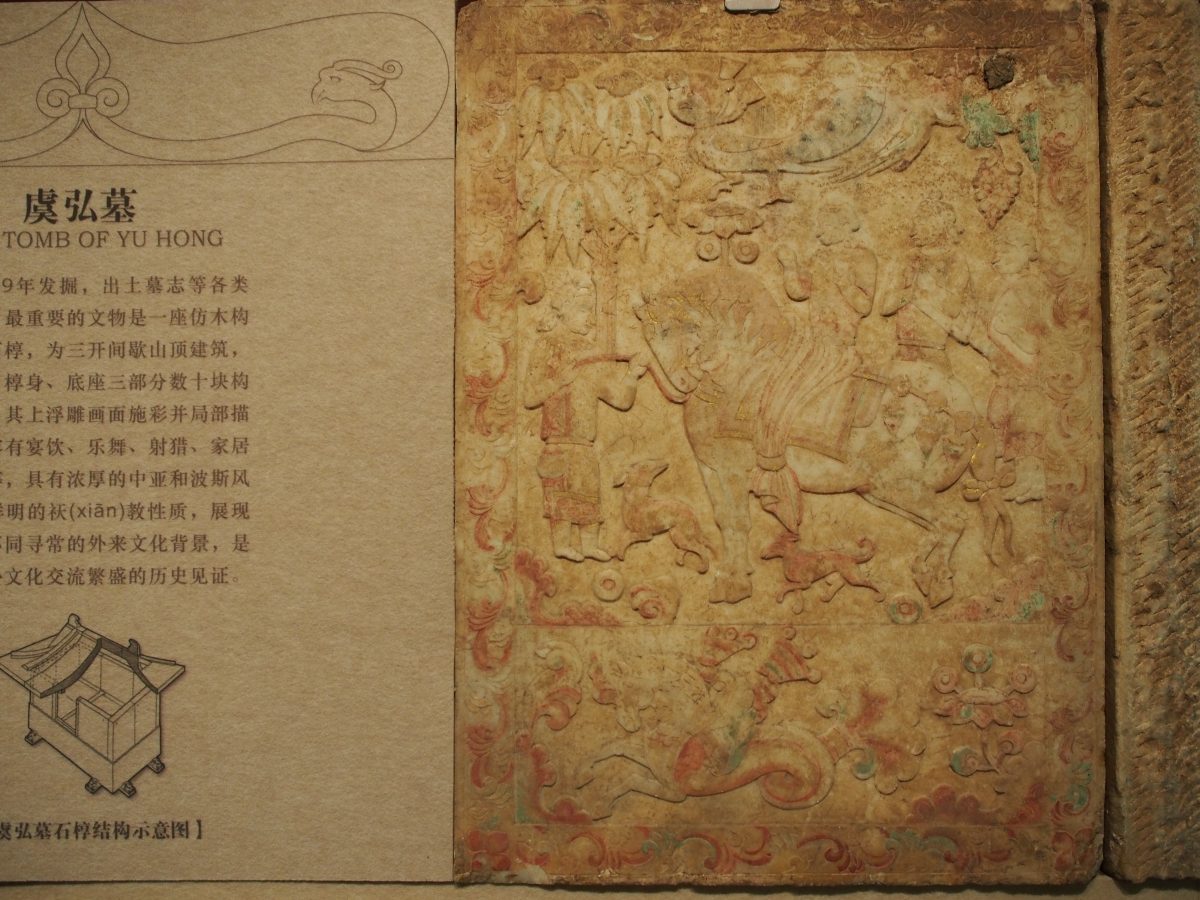 虞弘墓
TOMB OF YU HONG
9年发掘，出土墓志等各类
最重要的文物是一座仿木构
椁，为三开间歇山顶建筑，
椁身、底座三部分数十块构
其上浮雕画面施彩并局部描
有宴饮、乐舞、射猎、家居
，具有浓厚的中亚和波斯风
明的祆(xiān)教性质，展现
同寻常的外来文化背景，是
文化交流繁盛的历史见证。
虞弘墓石椁结构示意图】